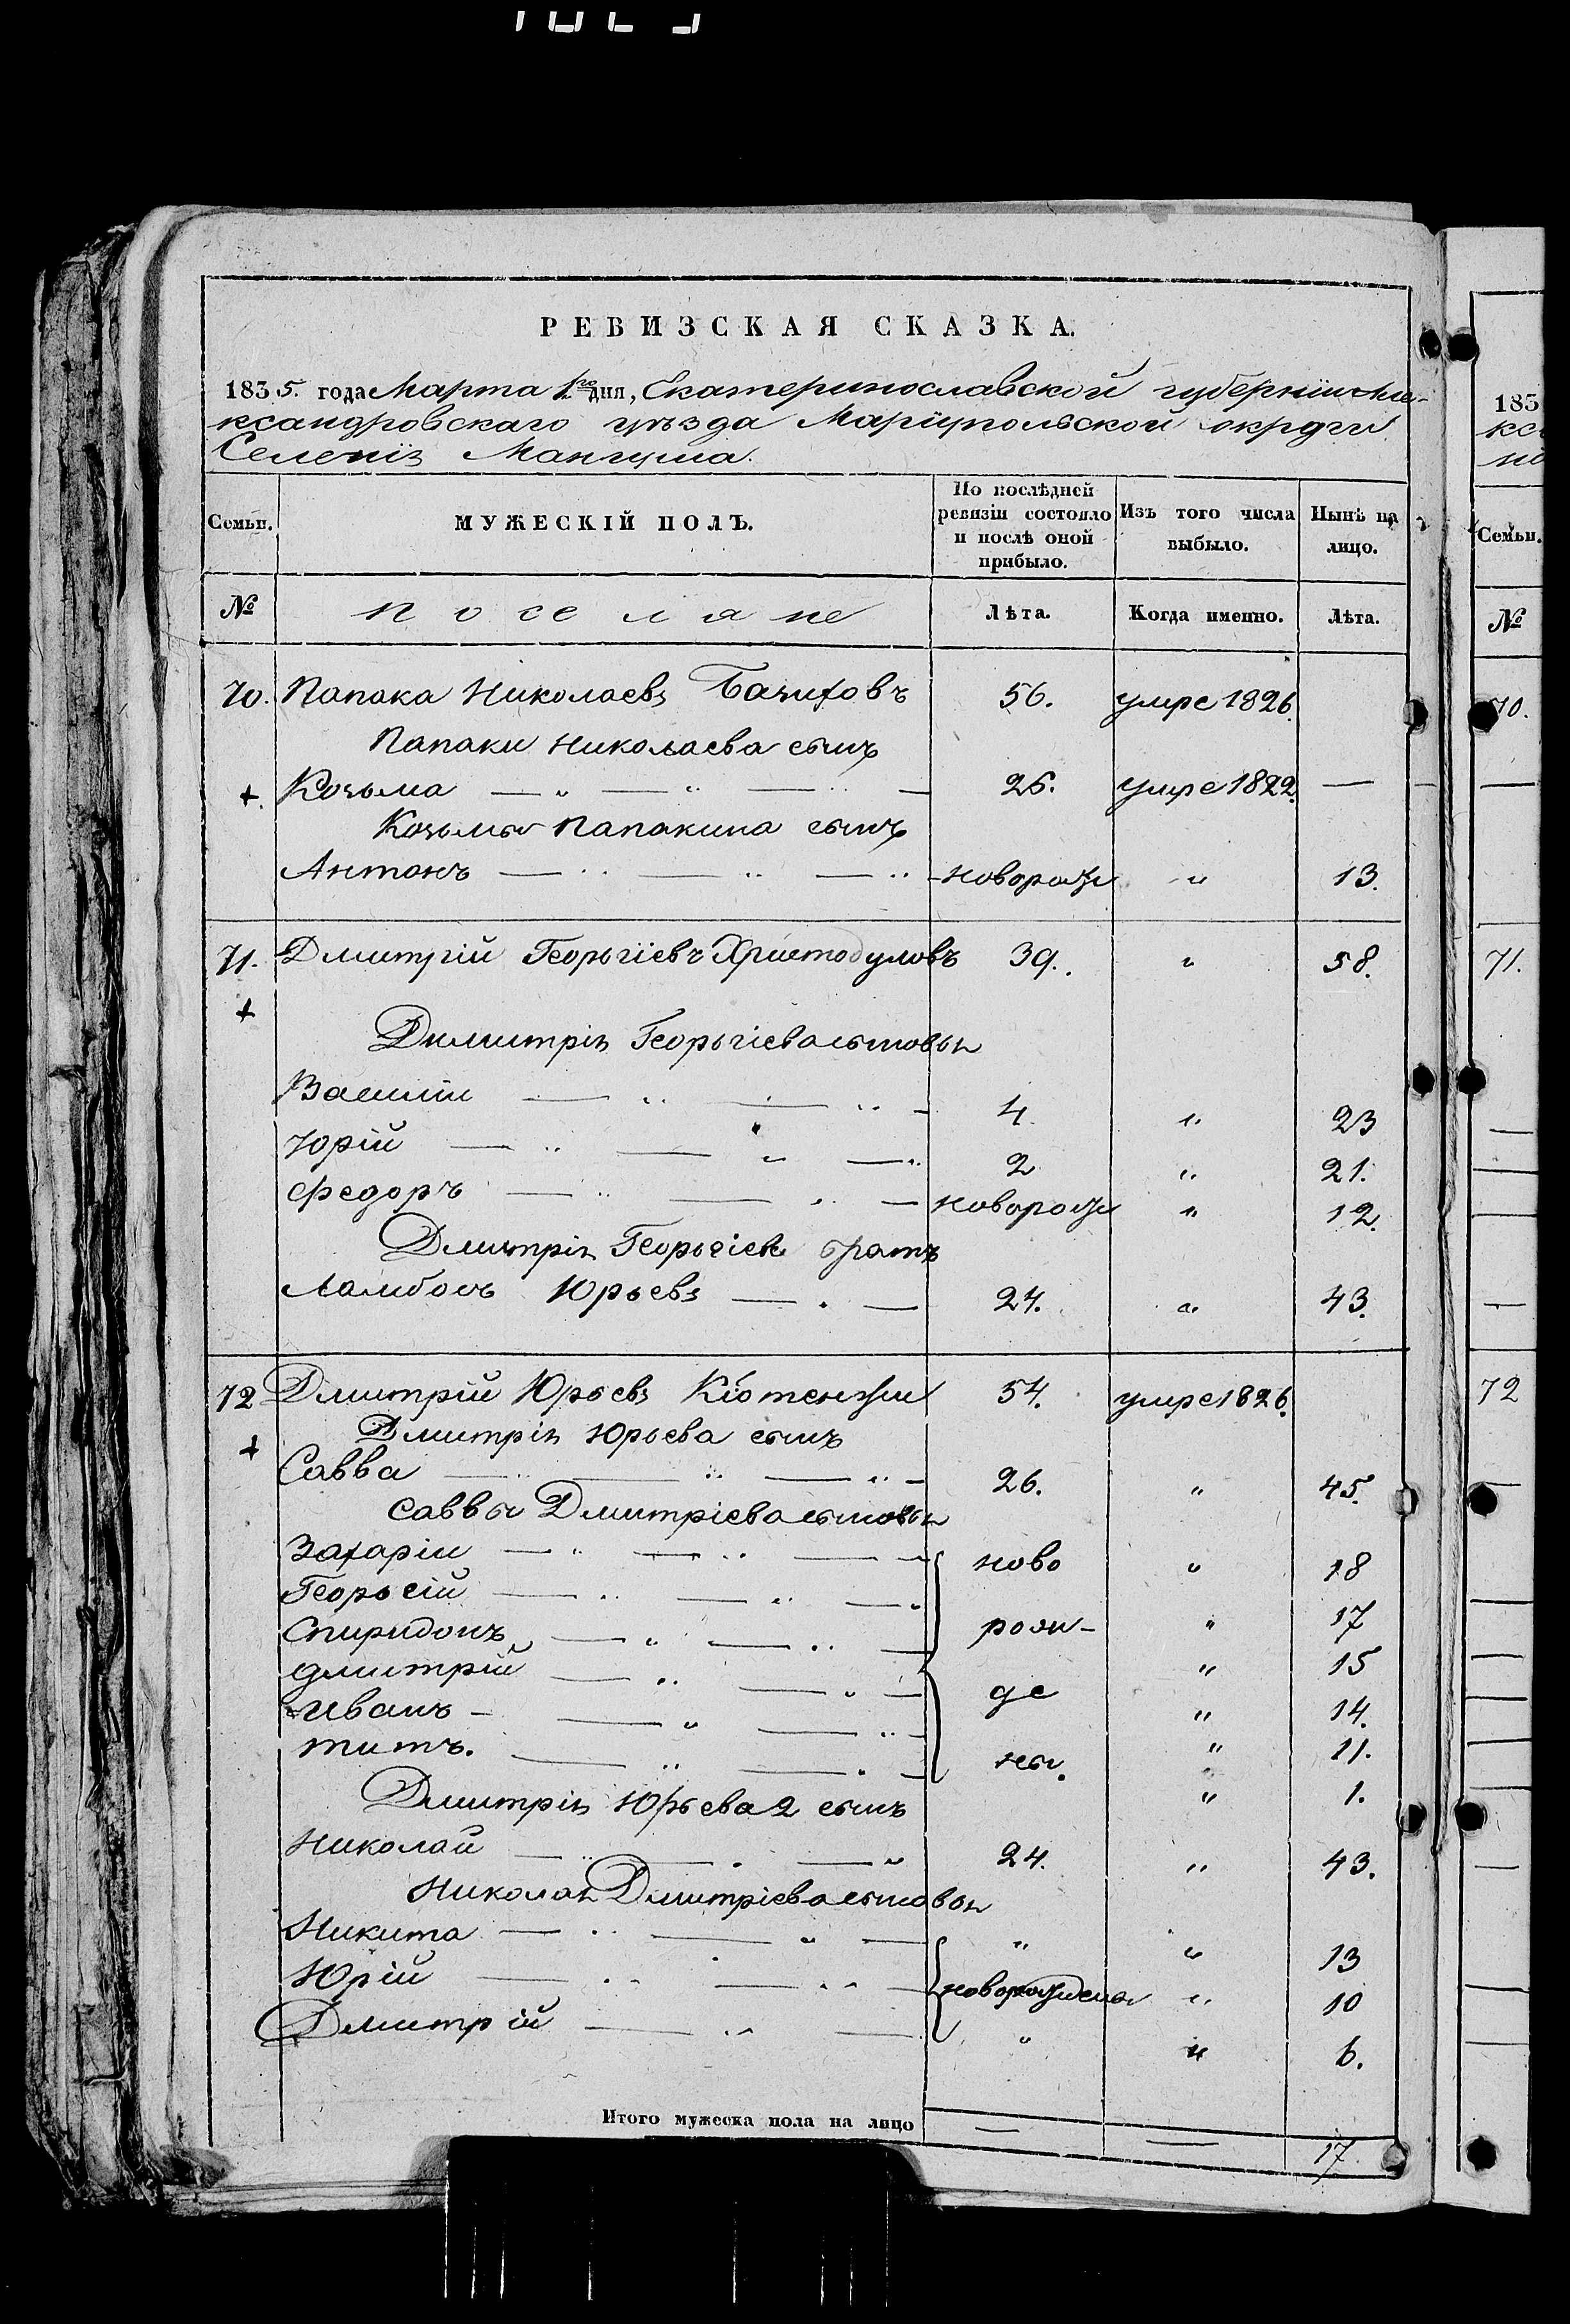 РЕВИЗСКАЯ СКАЗКА.
1835. года Марта 1го дня, Екатеринославской губернии Але-
ксандровскаго уѣзда Маріупольской округи
Селенія Мангуша.
Семьи. МУЖЕСКІЙ ПОЛЪ. По послѣдней ревизіи состояло и послѣ оной прибыло. Изъ того числа выбыло. Нынѣ на лицо.
№ поселяне Лѣта. Когда именно. Лѣта.
70. Папака Николаевъ 56. умре 1826.
Папаки Николаева сынъ
+. Козьма — " — " — " — 26. умре 1822. —
Козьмы Папакина сынъ
Антонъ — " — " — " новорож " 13.
71. Дмитрій Георьгіевъ Христодуловъ 39. " 58.
+
Димитрія Георьгіева сыновья
Василій — " — " — 4 " 23
Юрій — " — " — " 2 " 21.
Федоръ — " — " — новорож " 12.
Дмитрія Георьгіева братъ
Ламбосъ Юрьевъ — " — 24. " 43.
72 Дмитрій Юрьевъ Кіотенжи 54. умре 1826.
Дмитрія Юрьева сынъ
+ Савва — " — " — " — 26. " 45.
Саввы Дмитріева сыновья
Захарій — " — " — ново " 18
Георьгій — " — " — " 17
Спиридонъ — " — " — рож- " 15
Дмитрій — " — " — " 14.
Иванъ — — " — " де " 11.
Титъ. — " — " — ны. " 1.
Дмитрія Юрьева 2 сынъ
Николай — " — " — " 24. " 43.
Николая Дмитріева сыновья
Никита — " — " — " " 13
Юрій — " — " — новорождены " 10
Дмитрій — " — " " 6.
Итого мужеска пола на лицо — — 17.
183
ксо
нія
Семьи.
№
70.
—
71.
—
—
—
—
72
—
—
—
—
—
—
—
—
—